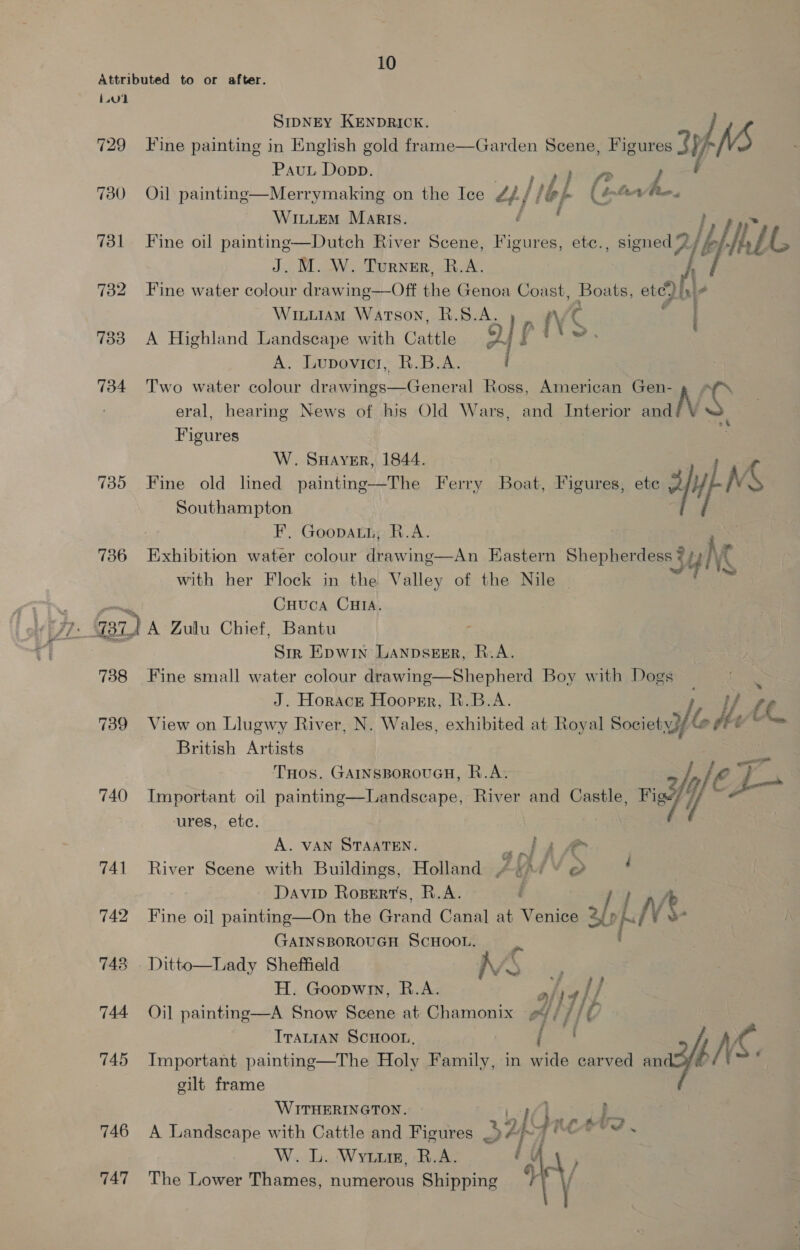 10
Attributed to or after.
Lot
SIDNEY KENDRICK.
729 Fine painting in English gold frame—Garden Scene, Figures NS
PAUL DODD.
730 Oil painting—Merrymaking on the Ice
WILLEM MARIS.
731 Fine oil painting—Dutch River Scene, Figures, etc., signed
J. M. W. TURNER, R.A.
732 Fine water colour drawing—Off the Genoa Coast, Boats, etc.
WILLIAM WATSON, R.S.A.
733 A Highland Landscape with Cattle NS.
A. LUDOVICI, R.B.A.
734 Two water colour drawings—General Ross, American Gen-
eral, hearing News of his Old Wars, and Interior and NS
Figures
W. SHAYER, 1844.
735 Fine old lined painting—The Ferry Boat, Figures, etc NS
Southampton
F. GOODALL, R.A.
736 Exhibition water colour drawing—An Eastern Shepherdess
with her Flock in the Valley of the Nile
CHUCA CHIA.
737 A Zulu Chief, Bantu
SIR EDWIN LANDSEER, R.A.
738 Fine small water colour drawing—Shepherd Boy with Dogs
J. HORACE HOOPER, R.B.A.
739 View on Llugwy River, N. Wales, exhibited at Royal Society
British Artists
THOS. GAINSBOROUGH, R.A.
740 Important oil painting—Landscape, River and Castle, Fig-
ures, etc.
A. VAN STAATEN.
741 River Scene with Buildings, Holland
DAVID ROBERTS, R.A.
742 Fine oil painting—On the Grand Canal at Venice NS.
GAINSBOROUGH SCHOOL.
743 Ditto—Lady Sheffield NS
H. GOODWIN, R.A.
744 Oil painting—A Snow Scene at Chamonix
ITALIAN SCHOOL.
745 Important painting—The Holy Family, in wide carved and NS.
gilt frame
WITHERINGTON.
746 A Landscape with Cattle and Figures
W. L. WYLLIE, R.A.
747 The Lower Thames, numerous Shipping